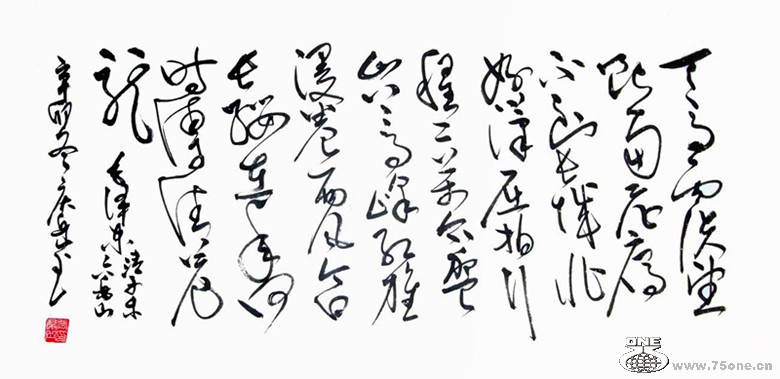 天高云淡望
断南飞雁
不到长城非
好汉屈指行
程二万六盘
山上高峰红旗
漫卷西风今日
长缨在手何
时缚住苍
龙
毛泽东清平乐
六盘山
辛卯冬
ONE
www.75one.cn